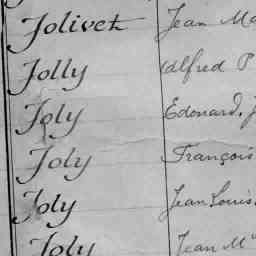 Jolivet Jean Ma
Jolly Alfred P
Joly Edouard, J
Joly François
Joly Jean Louis.
Joly Jean M